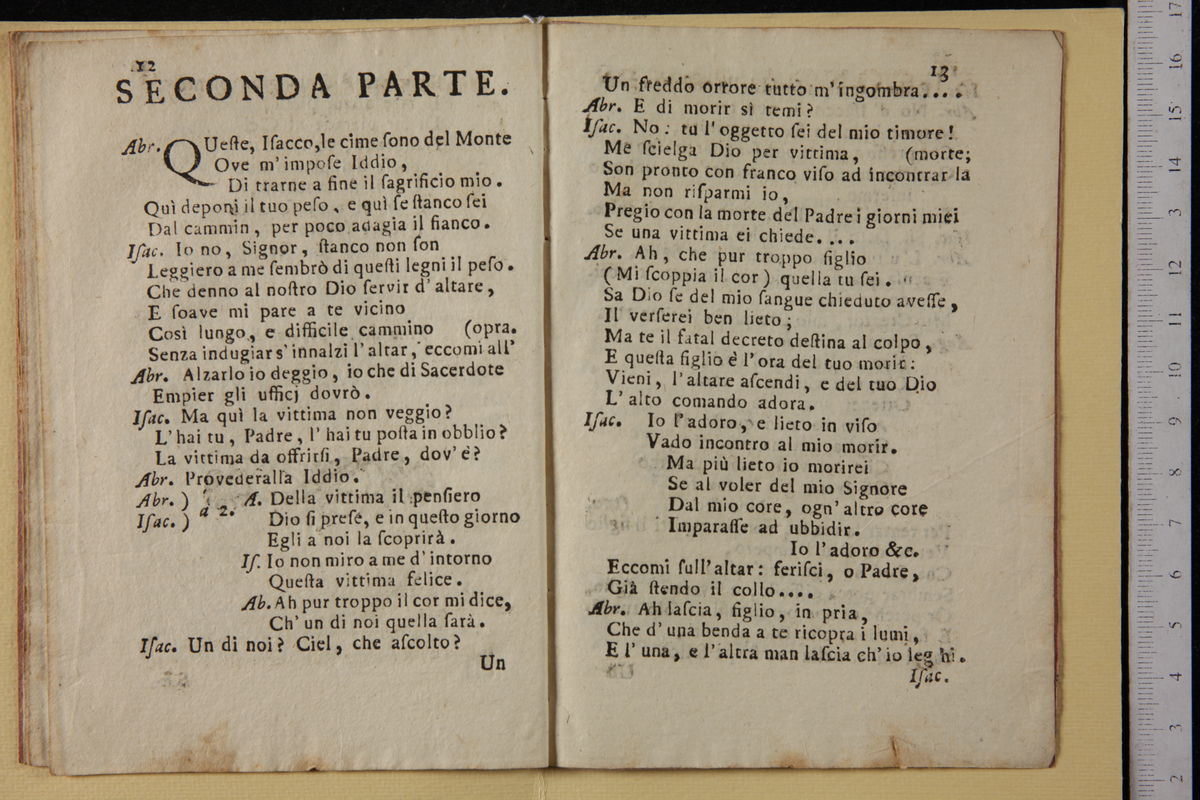 12
SECONDA PARTE.
Abr. QUeſte, Iſacco,le cime ſono del Monte
Ove m' impoſe Iddio,
Di trarne a fine il ſagrificio mio.
Quì deponi il tuo peſo, e quì ſe ſtanco ſei
Dal cammin, per poco adagia il fianco.
Iſac. Io no, Signor, ſtanco non ſon
Leggiero a me ſembrò di queſti legni il peſo.
Che denno al noſtro Dio ſervir d' altare,
E ſoave mi pare a te vicino
Così lungo, e difficile cammino (opra.
Senza indugiar s' innalzi l' altar, eccomi all'
Abr. Alzarlo io deggio, io che di Sacerdote
Empier gli ufficj dovrò.
Iſac. Ma quì la vittima non veggio?
L' hai tu, Padre, l' hai tu poſta in obblio?
La vittima da offrirſi, Padre, dov' è?
Abr. Provederalla Iddio.
Abr. ) A. Della vittima il penſiero
Iſac. ) a 2. Dio ſi preſe, e in queſto giorno
Egli a noi la ſcoprirà.
Iſ. Io non miro a me d' intorno
Queſta vittima felice.
Ab. Ah pur troppo il cor mi dice,
Ch' un di noi quella ſarà.
Iſac. Un di noi? Ciel, che aſcolto?
Un
13
Un freddo orrore tutto m' ingombra....
Abr. E di morir sì temi?
Iſac. No: tu l' oggetto ſei del mio timore!
Me ſcielga Dio per vittima, (morte;
Son pronto con franco viſo ad incontrar la
Ma non riſparmi io,
Pregio con la morte del Padre i giorni miei
Se una vittima ei chiede....
Abr. Ah, che pur troppo figlio
(Mi ſcoppia il cor) quella tu ſei.
Sa Dio ſe del mio ſangue chieduto aveſſe,
Il verſerei ben lieto;
Ma te il fatal decreto deſtina al colpo,
E queſta figlio è l' ora del tuo morir:
Vieni, l' altare aſcendi, e del tuo Dio
L' alto comando adora.
Iſac. Io l' adoro, e lieto in viſo
Vado incontro al mio morir.
Ma più lieto io morirei
Se al voler del mio Signore
Dal mio core, ogn' altro core
Imparaſſe ad ubbidir.
Io l' adoro &c.
Eccomi ſull' altar: feriſci, o Padre,
Già ſtendo il collo....
Abr. Ah laſcia, figlio, in pria,
Che d' una benda a te ricopra i lumi,
E l' una, e l' altra man laſcia ch' io leghi.
Iſac.